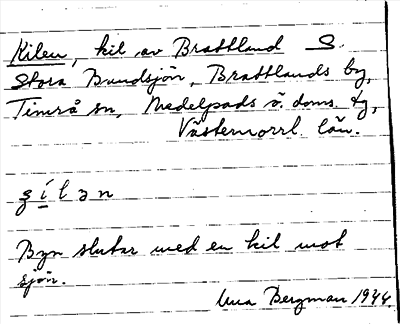 Kilen, kil av Brattland S.
Stora Bandsjön, Brattlands by,
Timrå sn, Medelpads ö. doms. tg,
Västernorrl. län.
ʒílən
Byn slutar med en kil mot
sjön.
Una Bergman 1944.